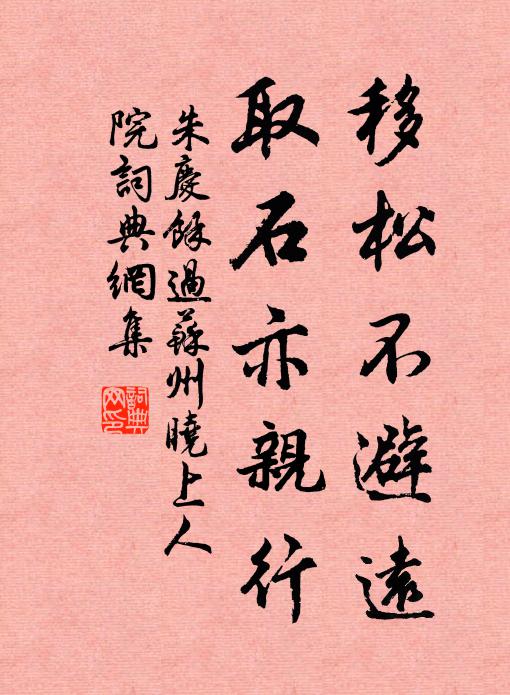 移松不避遠
取石亦親行
朱慶餘過蘇州曉上人
院詞典網集
詞典
网印